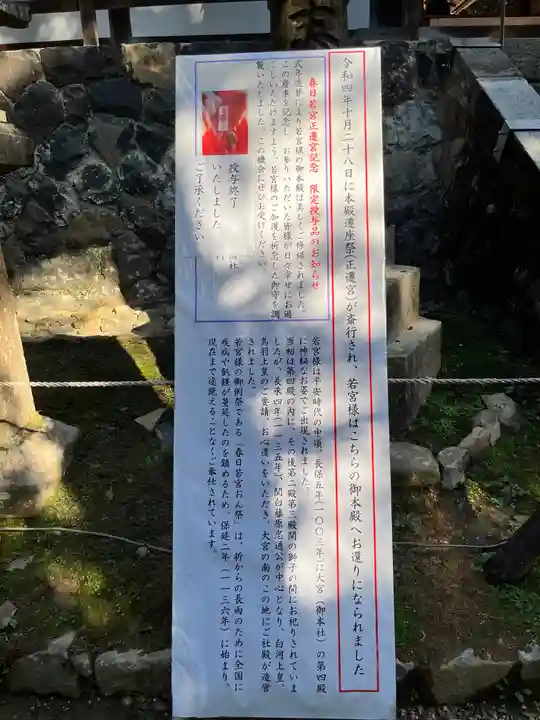 令和四年十月二十八日に本殿遷座祭(正遷宮)が斎行され、若宮様はこちらの御本殿へお還りになられました
春日若宮正遷宮記念　限定授与品のお知らせ
式年造替により若宮様の御本殿は美しくご修繕されました。
この慶事を記念し、お参りいただいた皆様が日々幸せにお過
ごしいただけますよう、若宮様のご加護を祈念した御守を調
製いたしました。この機会にぜひお受けください。
授与終了
いたしました
ご了承ください
若宮様は平安時代の中頃、長保五年(一〇〇三年)に大宮(御本社)の第四殿
に神秘なお姿でご出現されました。
当初は第四殿の内に、その後第二殿第三殿間の獅子の間にお祀りされていま
したが、長承四年(一一三五年)、関白藤原忠通公が中心となり、白河上皇、
鳥羽上皇のご要請、お心遣いをいただき、大宮の南のこの地にご社殿が造営
されました。
若宮様の御例祭である「春日若宮おん祭」は、折からの長雨のために全国に
疾病や飢饉が蔓延したのを鎮めるため、保延二年(一一三六年)に始まり、
現在まで途絶えることなくご奉仕されています。